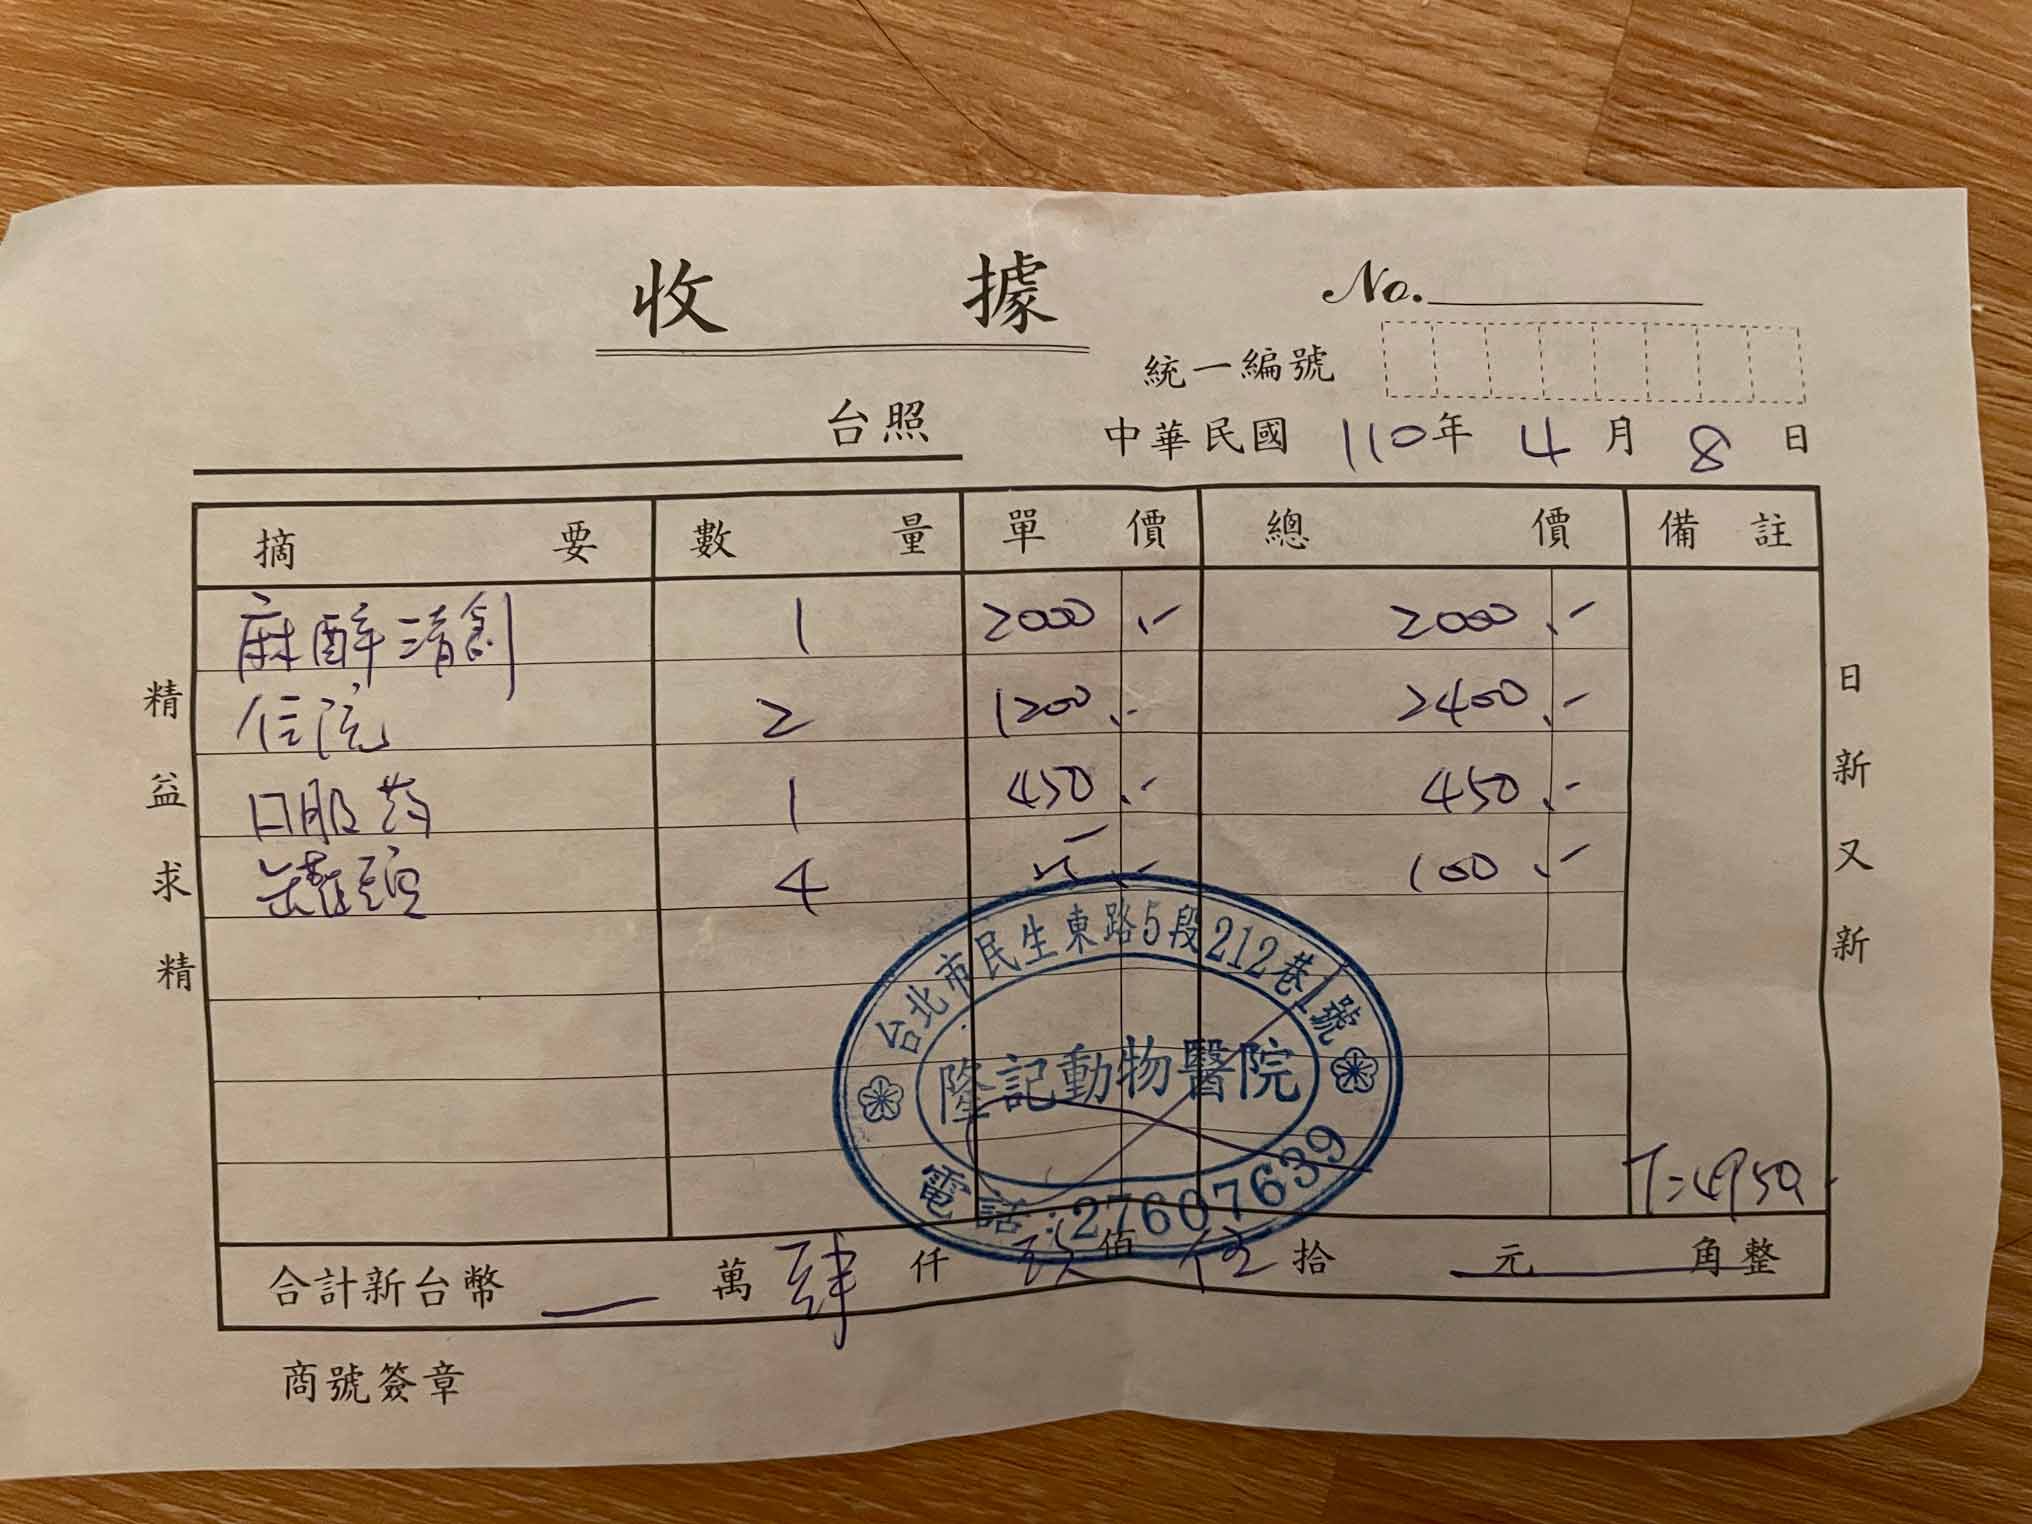 收據
No.
統一編號
台照
中華民國 110年 4月 8日
摘要 數量 單價 總價 備註
麻醉清創 1 2000.- 2000.-
住院 2 1200.- 2400.-
口服药 1 450.- 450.-
罐頭 4 100.-
T=4950.
合計新台幣 萬 肆仟 玖佰 伍拾 元 角整
商號簽章
精益求精
日新又新
台北市民生東路5段212巷1號
隆記動物醫院
電話:27607639